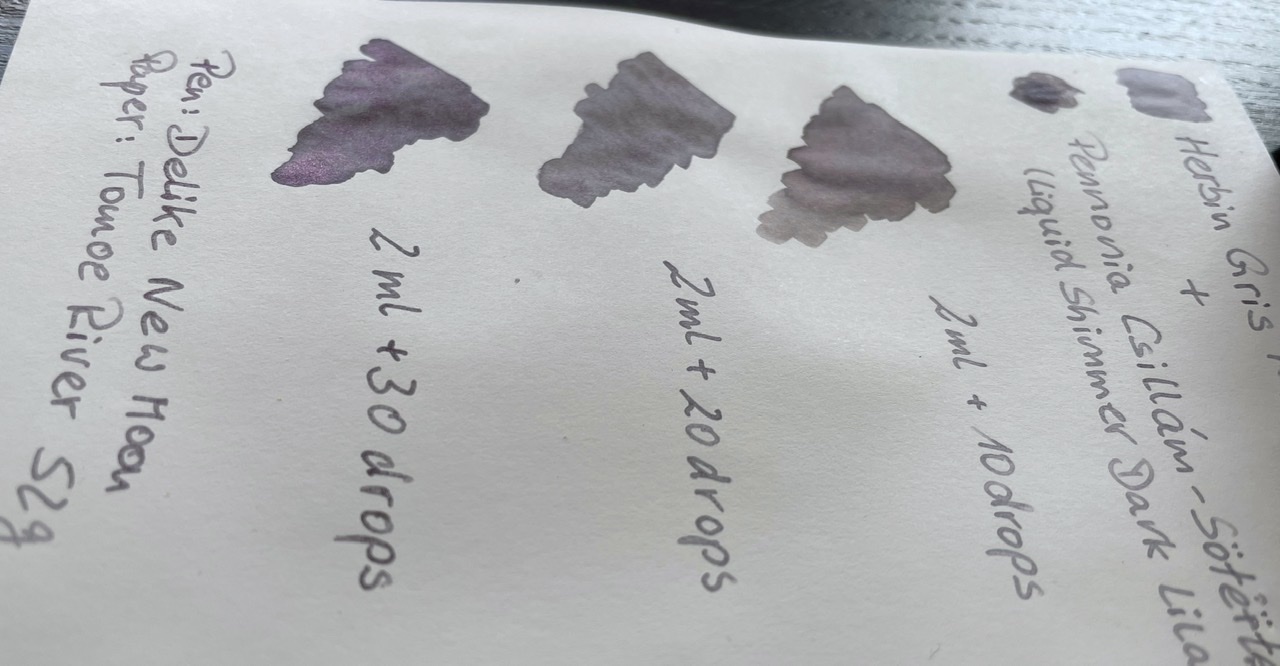 Herbin Gris
+
Pennonia Csillám-
(Liquid Shimmer Dark Lila
2ml + 10drops
2ml + 20drops
2ml + 30 drops
Pen: Delike New Moon
Paper: Tomoe River 52g